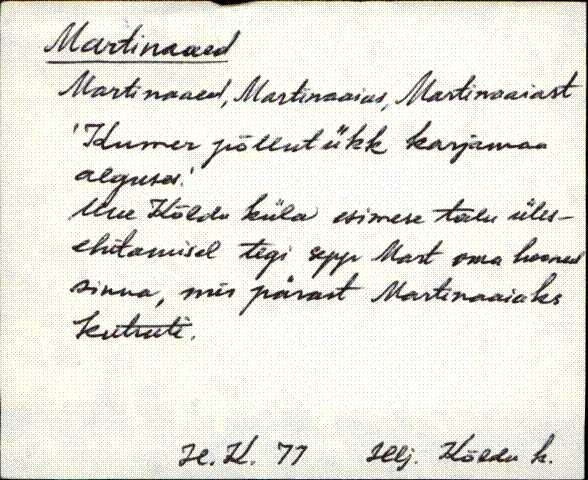 Martinaaed
Martinaaed, Martinaaias, Martinaaiast
'Kumer põllutükk karjamaa
alguses.'
Uue Kõldu küla esimese talu üles-
ehitamisel tegi sepp Mart oma hooned
sinna, mis pärast Martinaaiaks
kutsuti.
H. K. 77 Hlj. Kõldu k.